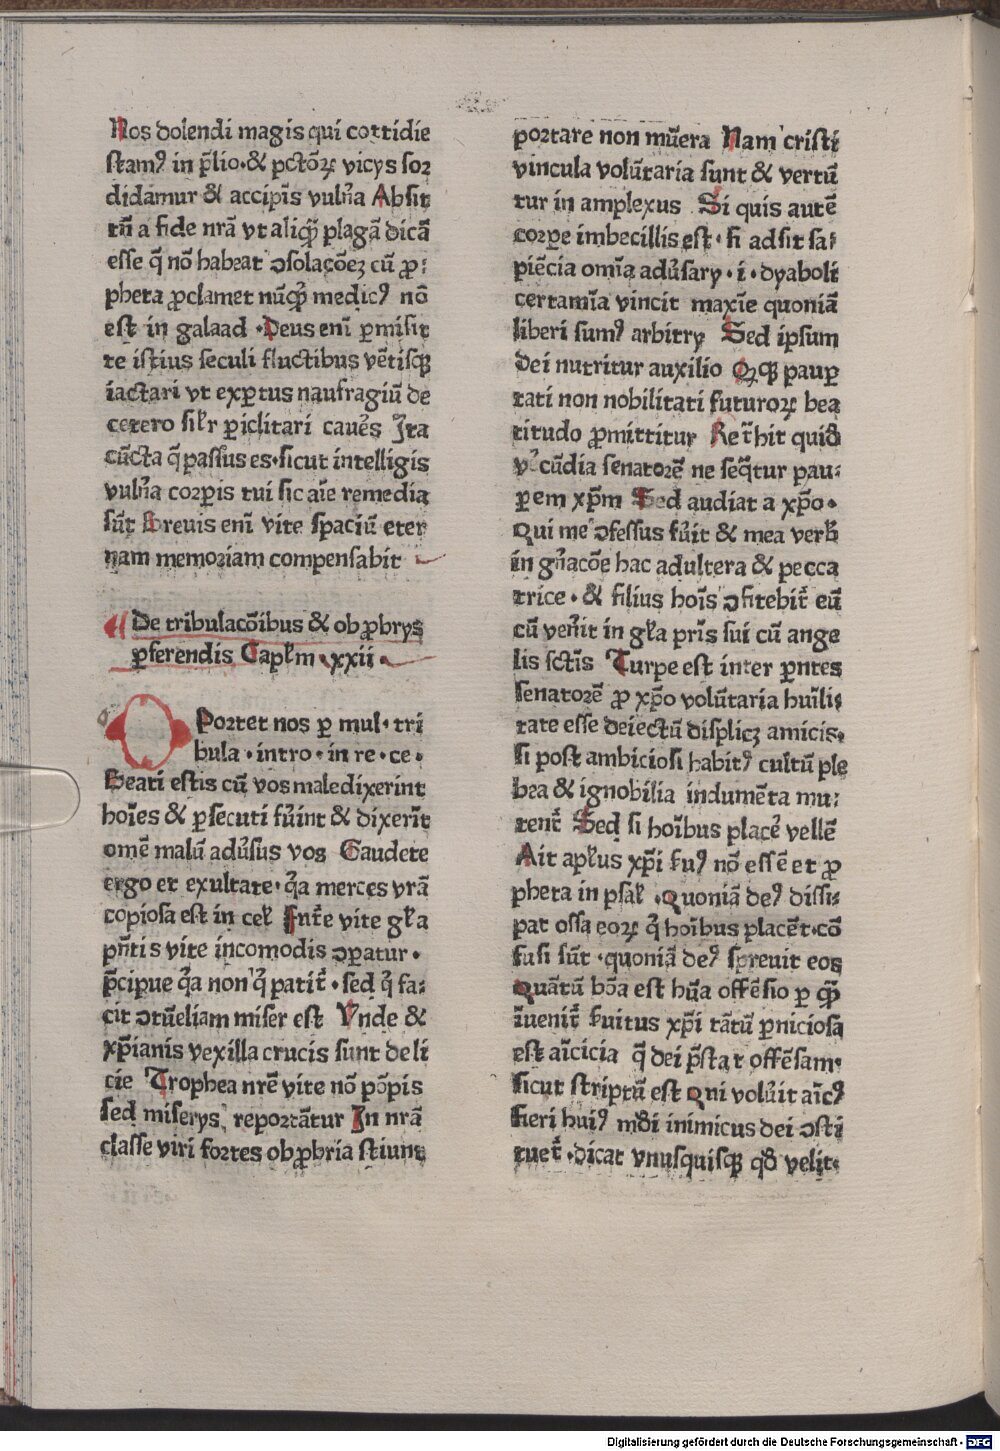 Nos dolendi magis qui cottidie
stamꝰ in p̄lio·& pctōꝝ vicys sor
didamur & accipīs vuln̄a Absit
tn̄ a fide nrā vt aliqͥꝫ plagā dicā
esse q̄ nō habeat ↄsolacōeꝫ cū ꝓ⸗
pheta ꝓclamet nūqͥꝫ medicꝰ nō
est in galaad ·Deus enī ꝑmisit
te istius seculi fluctibus vētisqꝫ
iactari vt exꝑtus naufragiū de
cetero silr ꝑiclitari caue᷑s Ita
cūcta q̄ passus es·sicut intelligis
vuln̄a corꝑis tui sic aīe remedia
sūt Breuis enī vite spaciū eter
nam memoriam compensabit
De tribulacōibus & obꝓbrys
ꝑferendis Capłm ·xxii·
OPortet nos ꝑ mul·tri
bula·intro·in re·ce·
Beati estis cū vos maledixerint
hoīes & ꝑsecuti fūint & dixerīt
omē malū adūsus vos Gaudete
ergo et exultate·qͣa merces vrā
copiosa est in cel Int̄e vite gła
pn̄tis vite incomodis ↄꝑatur·
p̄cipue qͣa non qͥ patit᷑·sed qͥ fa⸗
cit ↄtūeliam miser est Vnde &
xp̄ianis vexilla crucis sunt deli
cie Trophea nrē vite nō pōpis
sed miserys reportātur In nrā
classe viri fortes obꝓbria stiunt
portare non mūera Nam cristi
vincula volūtaria sunt & vertū
tur in amplexus Si quis autē
corꝑe imbecillis est·si adsit sa⸗
piēcia omīa adūsary·i·dyaboli
certamīa vincit maxīe quoniā
liberi sumꝰ arbitry Sed ipsum
dei nutritur auxilio Qꝫqꝫ pauꝑ
tati non nobilitati futuroꝝ bea
titudo ꝓmittitur Ret̄hit quid̄
v̄cūdia senatorē ne seq̄tur pau⸗
ꝑem xp̄m Sed audiat a xp̄o·
Qui me ↄfessus fūit & mea verb̄
in gn̄acōe hac adultera & pecca
trice·& filius hoīs ↄfitebit᷑ eū
cū ven̄it in gła pr̄is sui cū ange
lis sctīs Turpe est inter ꝑntes
senatorē ꝓ xp̄o volūtaria hūili⸗
tate esse deiectū displicꝫ amicis·
si post ambiciosi habitꝰ cultū ple
bea & ignobilia indumēta mu⸗
tent᷑ Sed si hoībus placē vellē
Ait apłus xp̄i suꝰ nō essē et ꝓ
pheta in psal ·Quoniā deꝰ dissi⸗
pat ossa eoꝝ qͥ hoībus placēt·cō
fusi sūt·quoniā deꝰ spreuit eos
Quātū bōa est hūa offēsio ꝑ qͣꝫ
īuenit᷑ suitus xp̄i tātū ꝑniciosa
est aīcicia q̄ dei p̄stat offēsam·
sicut scriptū est Qui volūit aīcꝰ
fieri huiꝰ mūdi inimicus dei ↄsti
tuet᷑·dicat vnusquisqꝫ qd̄ velit·
Digitalisierung gefördert durch die Deutsche Forschungsgemeinschaft · DFG